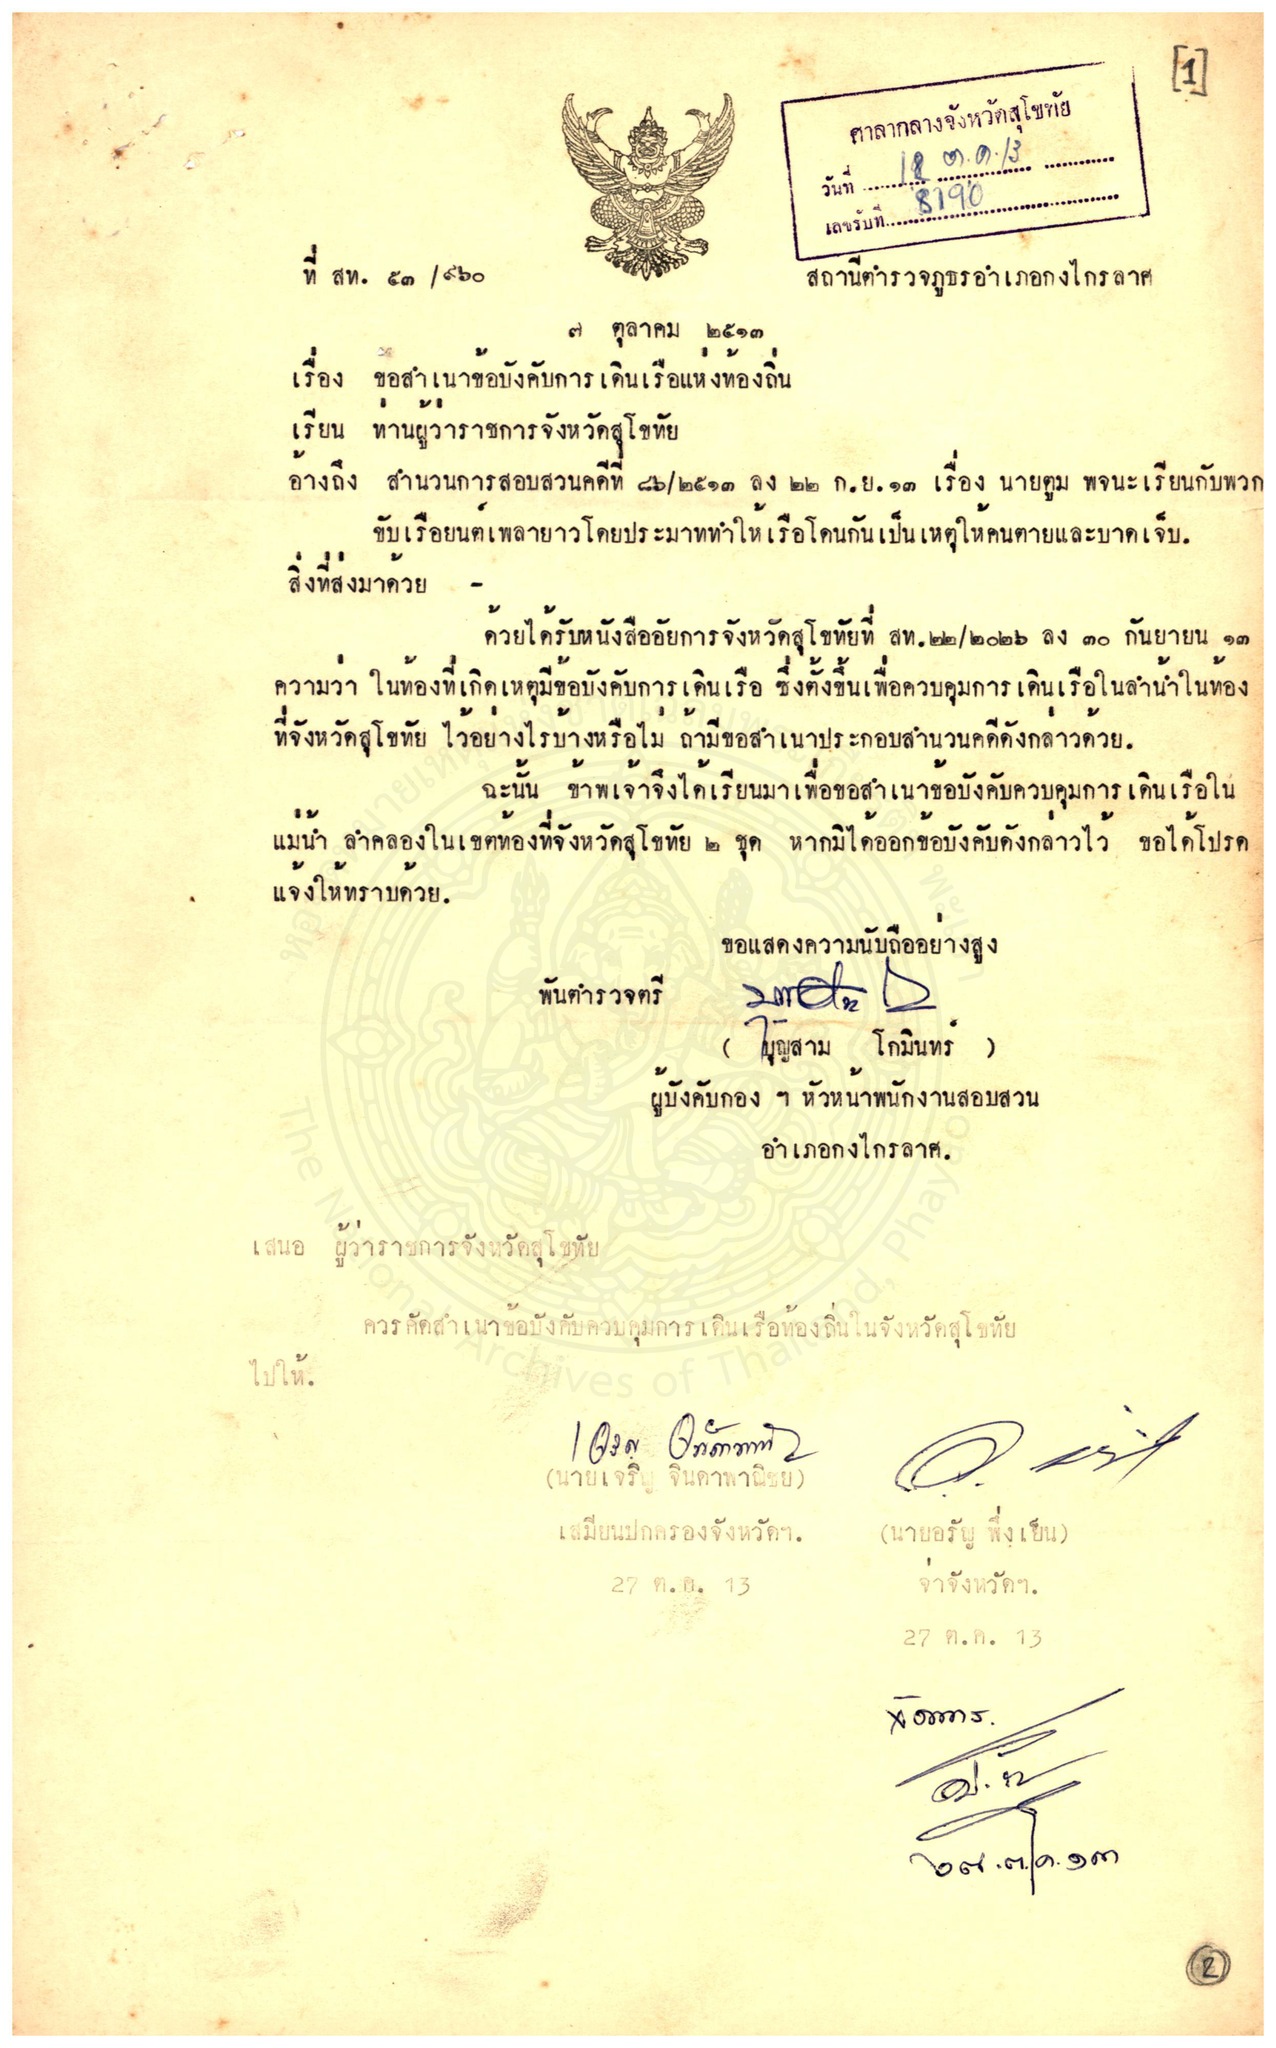 [1]
ศาลากลางจังหวัดสุโขทัย
วันที่ 12 ต.ค. 13
เลขรับที่ 8190
ที่ สท. ๕๓ /๙๖๐
สถานีตำรวจภูธรอำเภอกงไกรลาศ
๗ ตุลาคม ๒๕๑๓
เรื่อง ขอสำเนาข้อบังคับการเดินเรือแห่งท้องถิ่น
เรียน ท่านผู้ว่าราชการจังหวัดสุโขทัย
อ้างถึง สำนวนการสอบสวนคดีที่ ๘๖/๒๕๑๓ ลง ๒๒ ก.ย.๑๓ เรื่อง นายตูม พจนะเรียนกับพวก
ขับเรือยนต์เพลายาวโดยประมาททำให้เรือโดนกันเป็นเหตุให้คนตายและบาดเจ็บ.
สิ่งที่ส่งมาด้วย -
ด้วยได้รับหนังสืออัยการจังหวัดสุโขทัยที่ สท.๒๒/๒๐๒๖ ลง ๓๐ กันยายน ๑๓
ความว่า ในท้องที่เกิดเหตุมีข้อบังคับการเดินเรือ ซึ่งตั้งขึ้นเพื่อควบคุมการเดินเรือในลำน้ำในท้อง
ที่จังหวัดสุโขทัย ไว้อย่างไรบ้างหรือไม่ ถ้ามีขอสำเนาประกอบสำนวนคดีดังกล่าวด้วย.
ฉะนั้น ข้าพเจ้าจึงได้เรียนมาเพื่อขอสำเนาข้อบังคับควบคุมการเดินเรือใน
แม่น้ำ ลำคลองในเขตท้องที่จังหวัดสุโขทัย ๒ ชุด หากมิได้ออกข้อบังคับดังกล่าวไว้ ขอได้โปรด
แจ้งให้ทราบด้วย.
ขอแสดงความนับถืออย่างสูง
พันตำรวจตรี
( บุญสาม โกมินทร์ )
ผู้บังคับกอง ฯ หัวหน้าพนักงานสอบสวน
อำเภอกงไกรลาศ.
เสนอ ผู้ว่าราชการจังหวัดสุโขทัย
ควรคัดสำเนาข้อบังคับควบคุมการเดินเรือท้องถิ่นในจังหวัดสุโขทัย
ไปให้.
(นายเจริญ จินดาพาณิชย)
เสมียนปกครองจังหวัดฯ.
27 ต.ค. 13
(นายอรัญ พึ่งเย็น)
จ่าจังหวัดฯ.
27 ต.ค. 13
จัดการ.
๒๗.ต.ค.๑๓
2
The National Archives of Thailand, Phayao